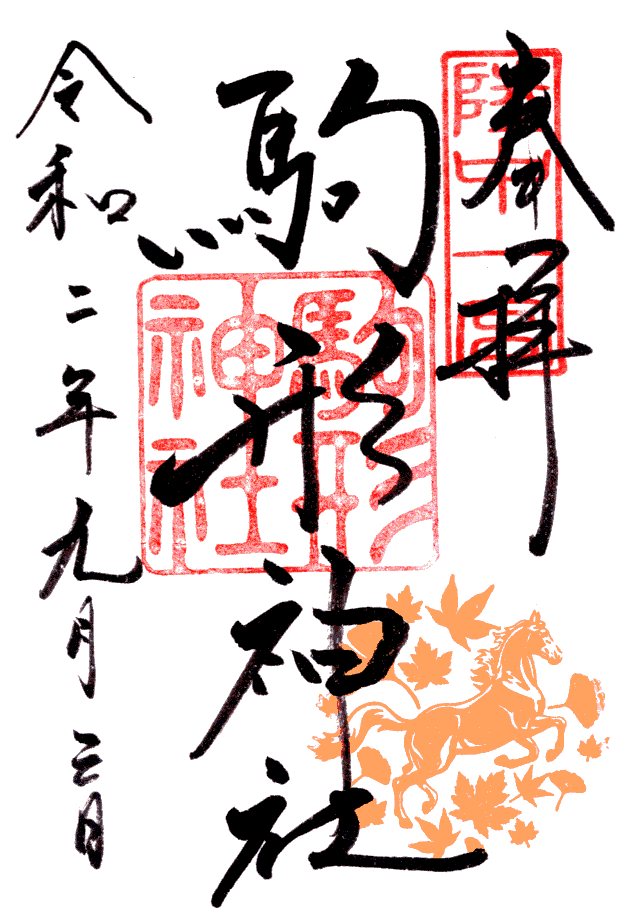 奉拝
陸中一宮
駒形神社
駒形
神社
令和二年九月三日